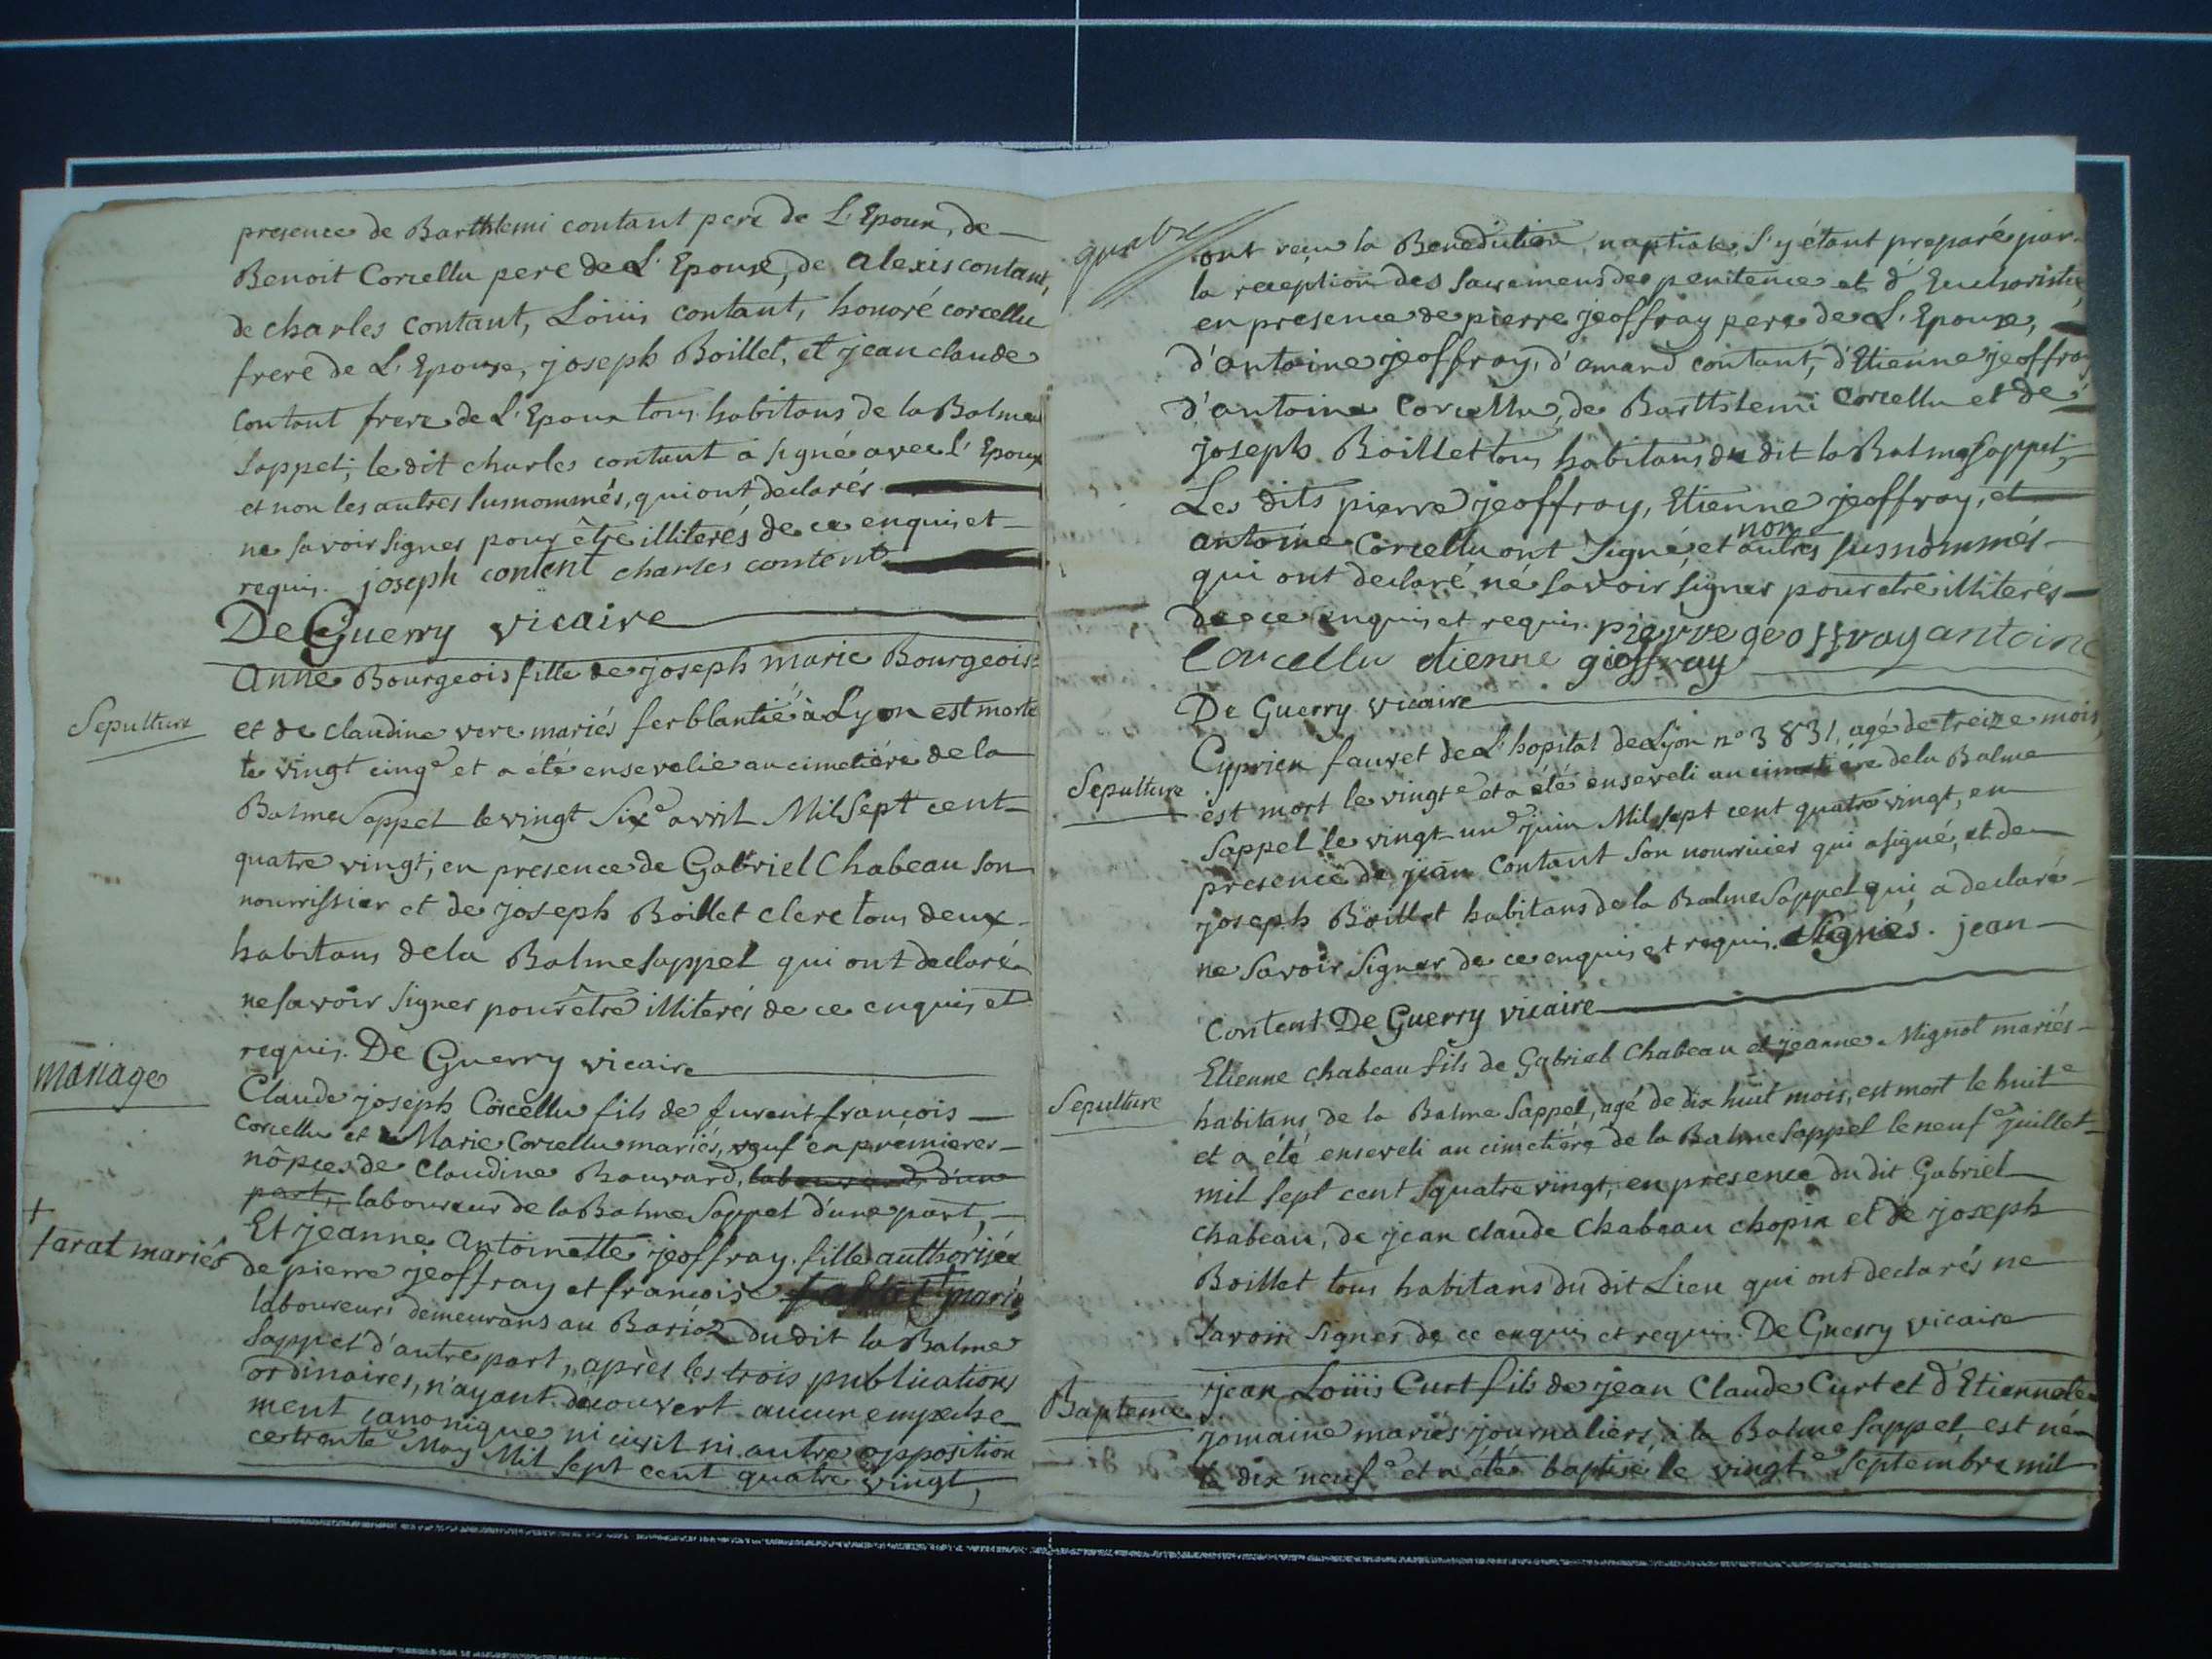 presence de Barthlemi contant pere de L'Epoux, de
Benoit Corcellu pere de L'Epouse, de alexis contant,
de charles contant, Loüis contant, honoré corcellu
frere de L'Epouse, joseph Boillet, et jean claude
contant frere de L'Epoux tous habitans de la Balme
Sappel; le dit charles contant a signé avec L'Epoux
et non les autres susnommés, qui ont declarés
ne savoir signer pour être illiterés de ce enquis et
requis. joseph contént charles contént
De Guerry vicaire
Sepulture
Anne Bourgeois fille de joseph marie Bourgeois
et de claudine vere mariés ferblantié à Lyon est morte
le vingt cinq^e et a été ensevelie au cimetiére de la
Balme Sappel le vingt Six^e avril Mil Sept cent
quatre vingt; en presence de Gabriel Chabeau son
nourrissier et de joseph Boillet clerc tous deux
habitans de la Balme Sappel qui ont declaré
ne savoir signer pour être illiterés de ce enquis et
requis. De Guerry vicaire
mariage
Claude joseph Corcellu fils de furent françois
Corcellu et Marie Corcellu mariés, veuf en prémieres
nôpces de Claudine Bouvard, laboureur d'une
part, laboureur de la Balme Sappel d'une part,
Et jeanne Antoinette jeoffray fille authorisée
+
tarat mariés
de pierre jeoffray et francoise mariés
laboureurs demeurans au Barioz du dit la Balme
Sappel d'autre part, après les trois publications
ordinaires, n'ayant découvert aucun empeche
ment canonique ni civil ni autre opposition
ce trente^e May Mil Sept cent quatre vingt,
quatre
ont reçu la Benediction nuptiale, s'y étant preparé par
la reception des Sacremens de penitence et d'Eucharistie,
en presence de pierre jeoffray pére de L'Epouse,
d'antoine jeoffray, d'amand contant, d'Etienne jeoffray
d'antoine Corcellu, de Barthlemi Corcellu et de
joseph Boillet tous habitans du dit la Balme Sappel,
Les dits pierre jeoffray, Etienne jeoffray, et
antoine Corcellu ont Signé, et non autres susnommés
qui ont declaré né savoir signer pour etre illiterés
de ce enquis et requis. pierre geoffray antoine
Corcellu etienne gioffray
De Guerry vicaire
Sepulture
Cyprien fauvet de L'hopital de Lyon n° 3831, agé de treize mois,
est mort le vingt^e et a été enseveli au cimetiére de la Balme
Sappel le vingt un^e juin Mil sept cent quatre vingt, en
presence de jean Contant son nourricier qui a signé, et de
joseph Boillet habitans de la Balme Sappel qui a declaré
ne Savoir Signer de ce enquis et requis. Signies. jean
Content De Guerry vicaire
Sepulture
Etienne chabeau fils de Gabriel Chabeau et jeanne Mignot mariés
habitans de la Balme Sappel, agé de dix huit mois, est mort le huit^e
et a été enseveli au cimetiére de la Balme Sappel le neuf^e juillet
mil sept cent quatre vingt, en presence du dit Gabriel
chabeau, de jean claude Chabeau chopin et de joseph
Boillet tous habitans du dit Lieu qui ont declarés ne
savoir signer de ce enquis et requis. De Guerry vicaire
Bapteme
jean Loüis Curt fils de jean Claude Curt et d'Etiennete
jomaine mariés journaliers, a la Balme Sappel, est né
le dix neuf^e et a été baptisé le vingt^e Septembre mil